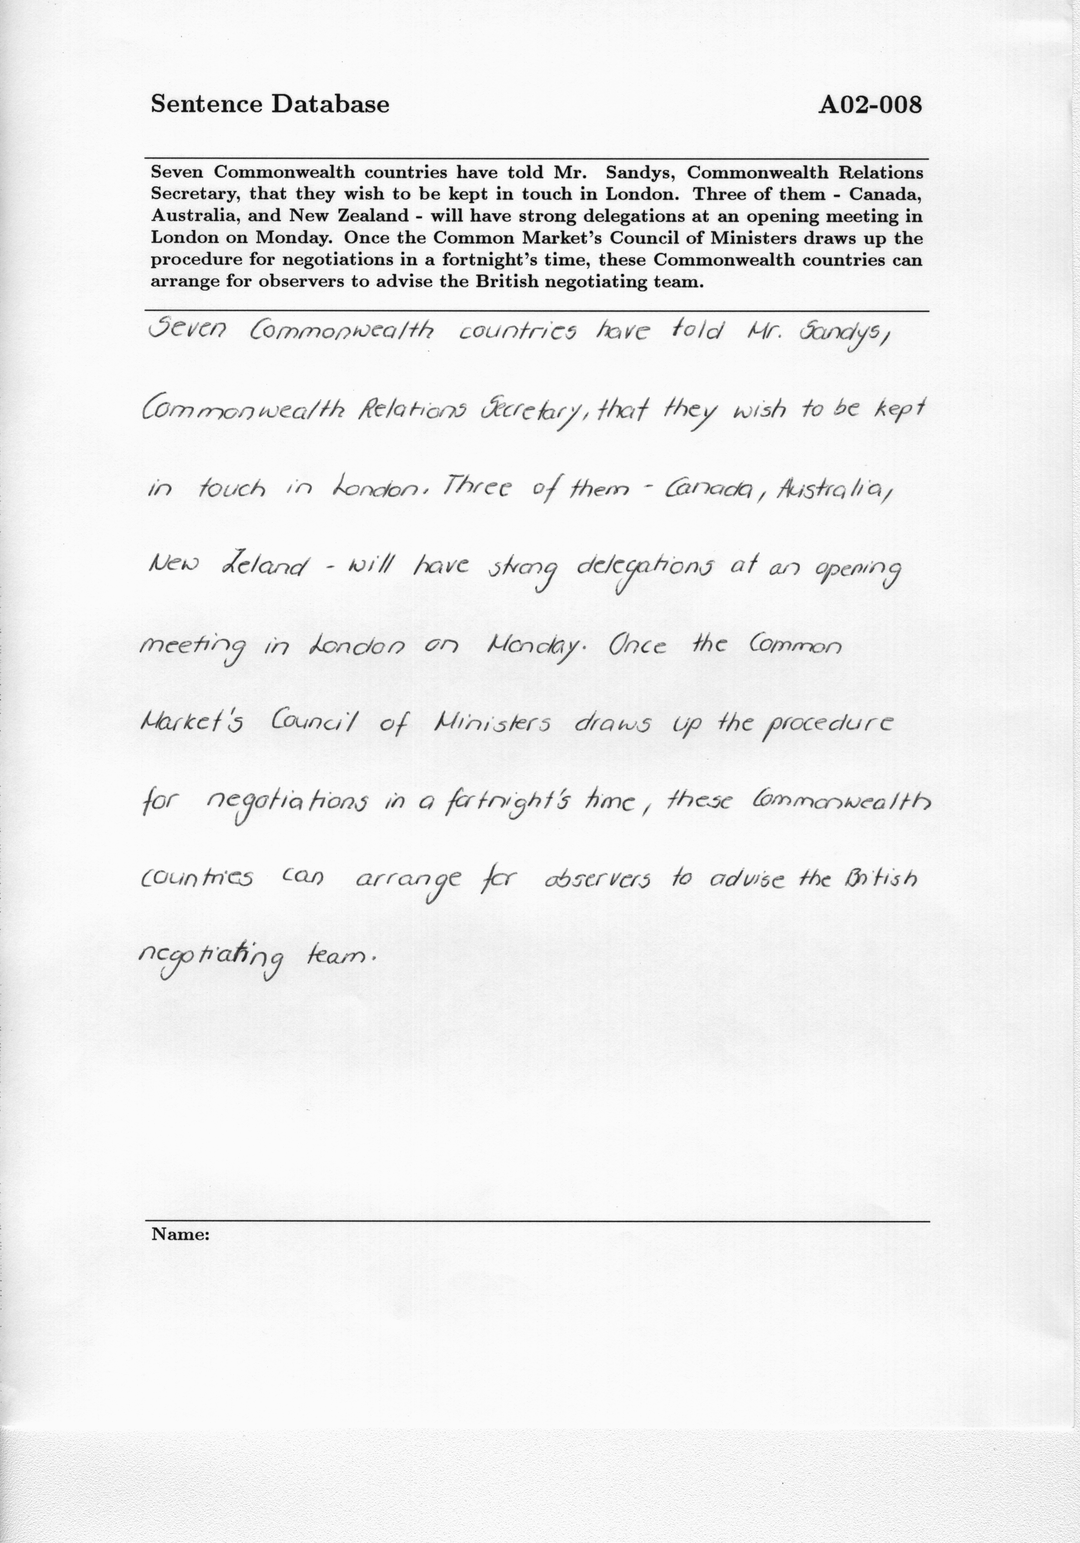 Sentence Database A02-008
Seven Commonwealth countries have told Mr. Sandys, Commonwealth Relations
Secretary, that they wish to be kept in touch in London. Three of them - Canada,
Australia, and New Zealand - will have strong delegations at an opening meeting in
London on Monday. Once the Common Market's Council of Ministers draws up the
procedure for negotiations in a fortnight's time, these Commonwealth countries can
arrange for observers to advise the British negotiating team.
Seven Commonwealth countries have told Mr. Sandys,
Commonwealth Relations Secretary, that they wish to be kept
in touch in London. Three of them - Canada, Australia,
New Zeland - will have strong delegations at an opening
meeting in London on Monday. Once the Common
Market's Council of Ministers draws up the procedure
for negotiations in a fortnight's time, these Commonwealth
countries can arrange for observers to advise the British
negotiating team.
Name: